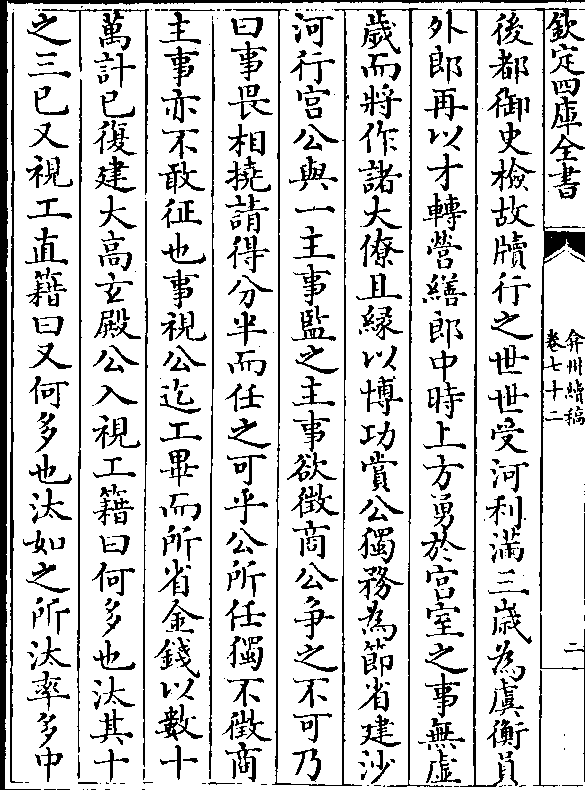 欽定四庫全書
弇州續稿
卷七十二
二
後都御史檢故牘行之世世受河利滿三歲為虞衡員
外郎再以才轉營繕郎中時上方勇於宫室之事無虛
歲而將作諸大僚且緣以博功賞公獨務為節省建沙
河行宫公與一主事監之主事欲徴商公争之不可乃
曰事畏相撓請得分半而任之可乎公所任獨不徴商
主事亦不敢征也事視公迄工畢而所省金錢以數十
萬計已復建大高玄殿公入視工籍曰何多也汰其十
之三已又視工直籍曰又何多也汰如之所汰率多中